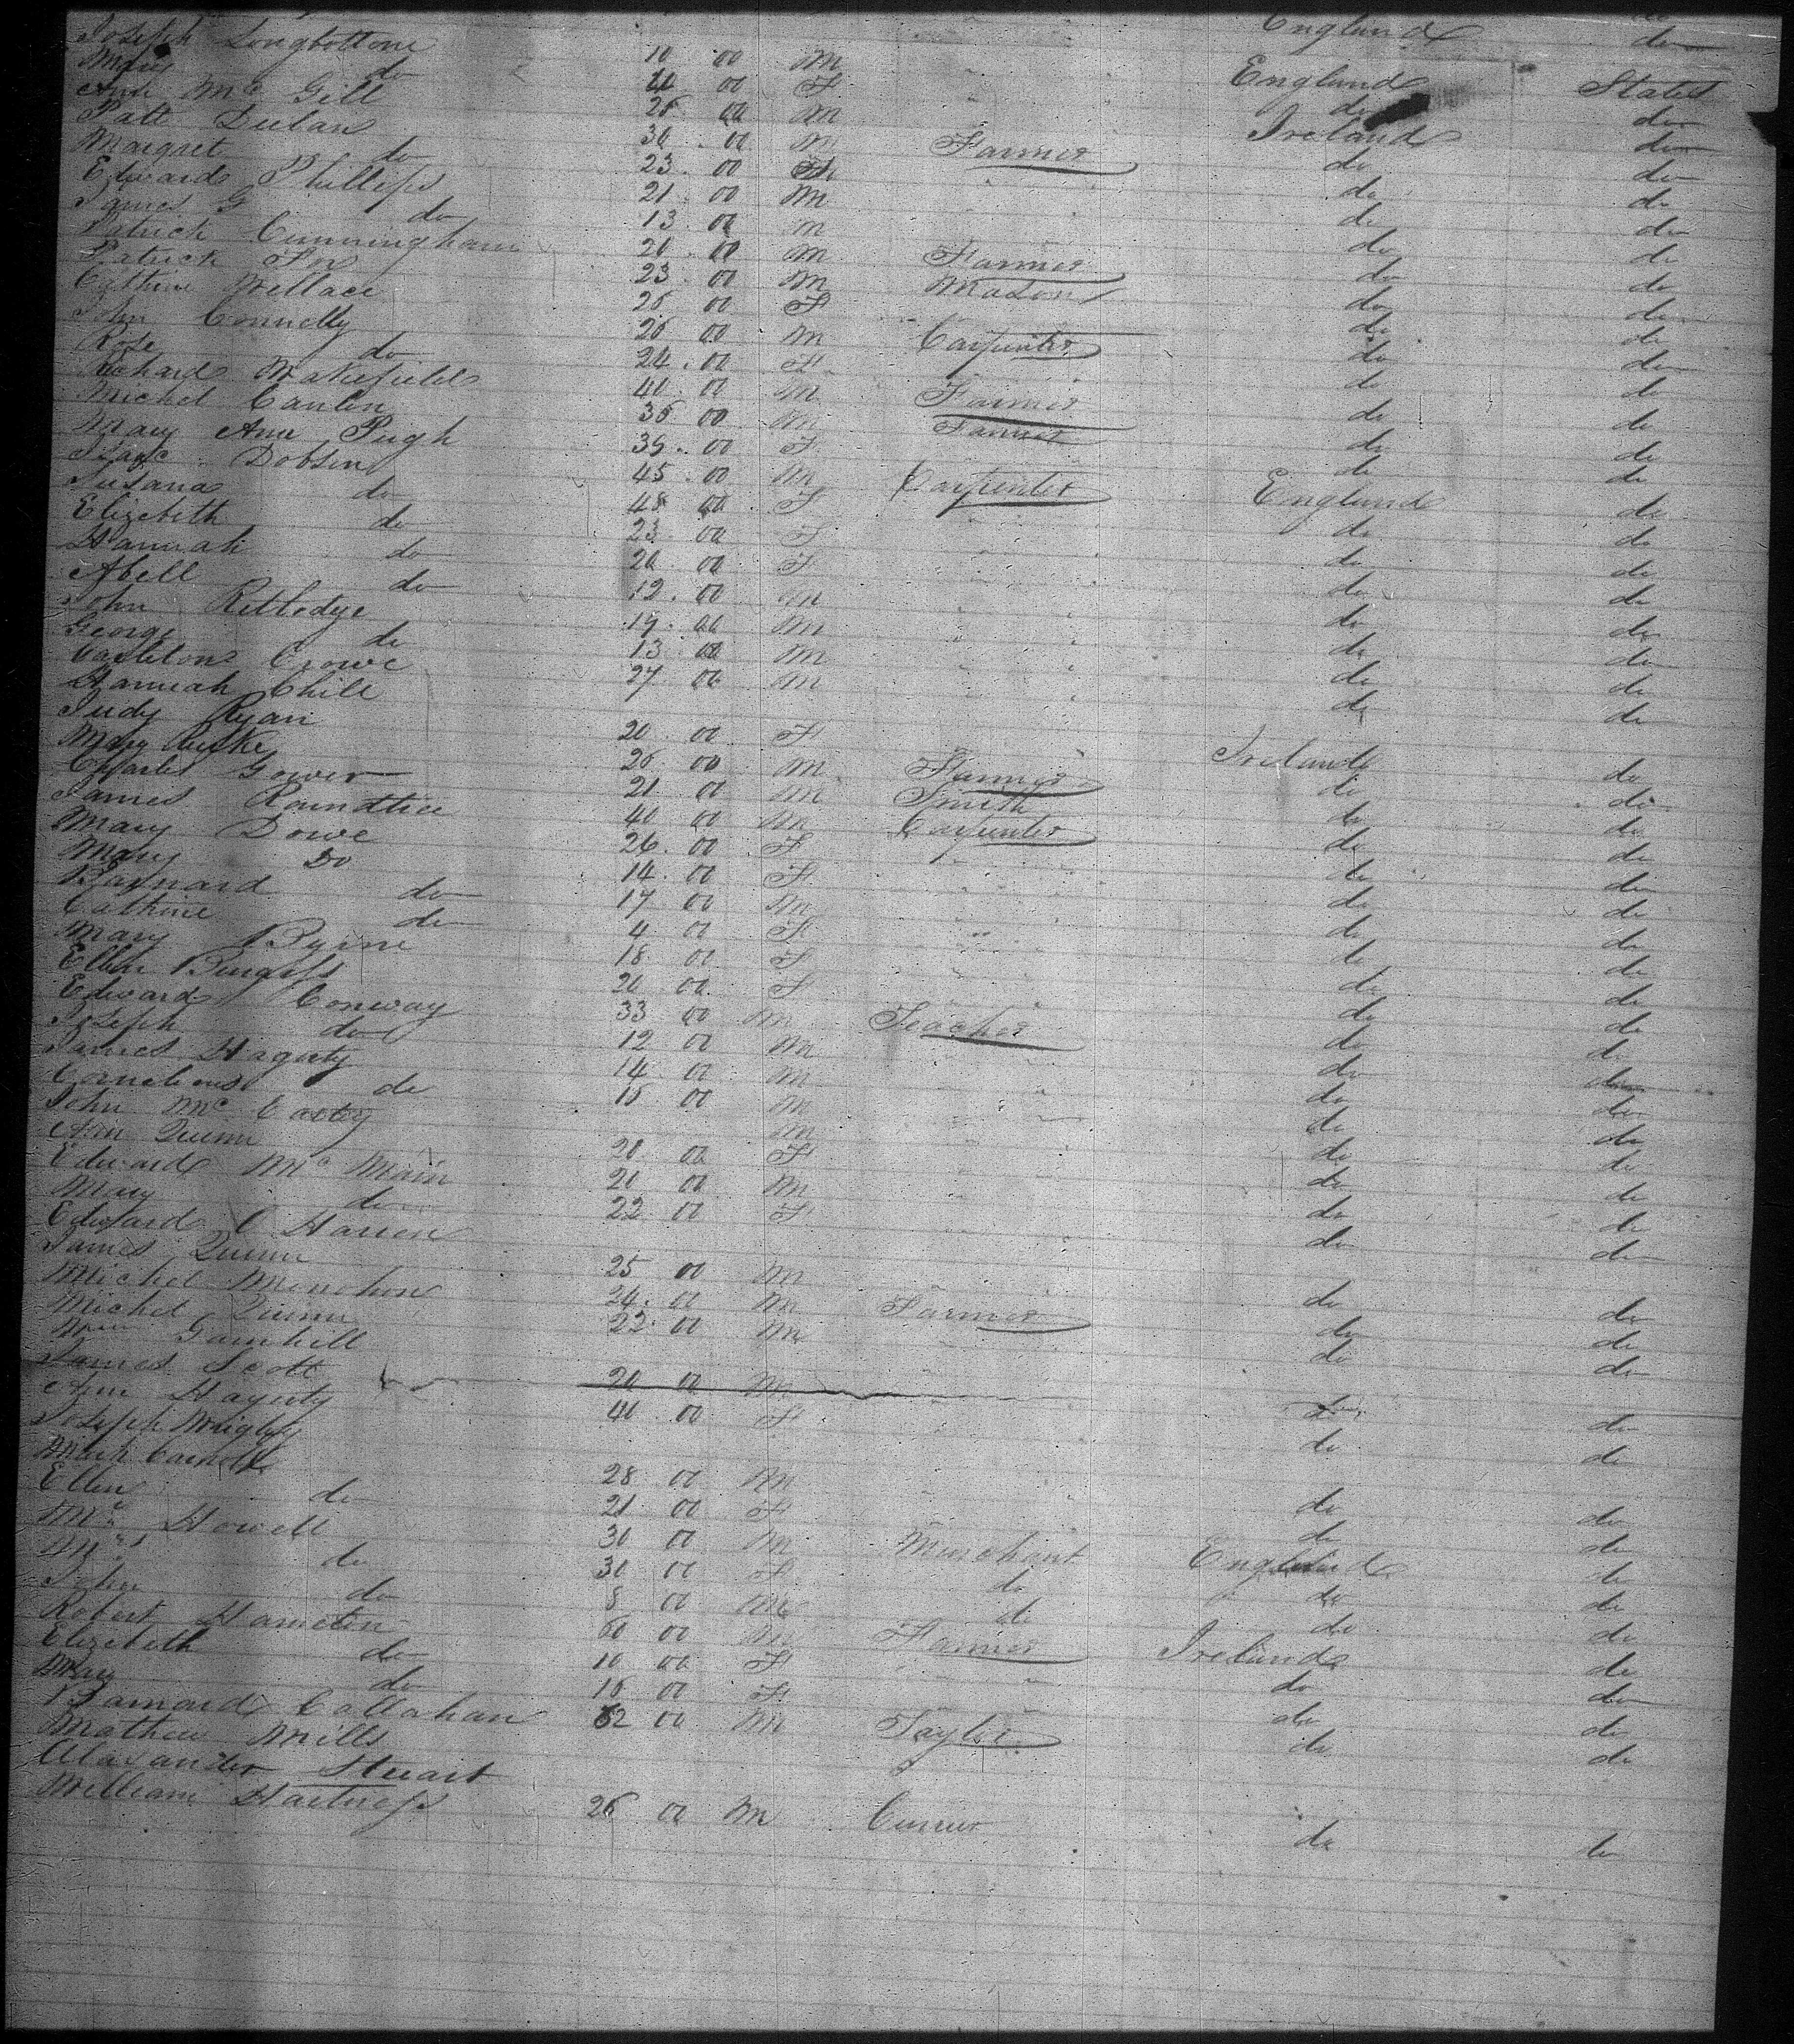 England do
Joseph Longbottom 10 00 M England States
Mary do 4 00 F do do
Ann Mc Gill 26 00 M Ireland do
Patt Dulan 30 00 M Farmer do do
Margret do 23 00 F do do
Edward Phillips 21 00 M do do
James G do 13 00 M do do
Patrick Cunningham 20 00 M Farmer do do
Patrick Fox 23 00 M Mason do do
Cathrine Wallace 25 00 F do do
John Connelly 26 00 M Carpenter do do
Rose do 24 00 F do do
Richard Wakefield 40 00 M Farmer do do
Michel Canlin 36 00 M Farmer do do
Mary Ann Pugh 35 00 F do do
Isaac Dobson 45 00 M Carpenter England do
Susana do 48 00 F do do
Elizebeth do 23 00 F do do
Hannah do 20 00 F do do
Abell do 12 00 M do do
John Rutledge 19 00 M do do
George do 13 00 M do do
Carleton Crowe 27 00 M do do
Hannah Chill
Judy Ryan 20 00 F Ireland do
Mary Burke 26 00 M Farmer do do
Charles Gower 21 00 M Smith do do
James Roundtree 40 00 M Carpenter do do
Mary Dowe 26 00 F do do
Mary Do 14 00 F do do
Barnard do 17 00 M do do
Cathrine do 4 00 F do do
Mary Byrne 18 00 F do do
Ellen Burgess 20 00 F do do
Edward Conway 33 00 M Teacher do do
Joseph do 12 00 M do do
James Haguty 14 00 M do do
Cornelious do 15 00 M do do
John Mc Carty M do do
Ann Quinn 20 00 F do do
Edward Mc Main 21 00 M do do
Mary do 22 00 F do do
Edward O Haren
James Quinn 25 00 M do do
Michel Monohon 24 00 M Farmer do do
Michel Quinn 22 00 M do do
Wm Gamhill
James Scott 20 00 M do do
Ann Haguty 40 00 F do do
Joseph Wrigley
Mark Carroll 28 00 M do do
Ellen do 21 00 F do do
Mr Howell 30 00 M Merchant England do
Mrs do 30 00 F do do do
John do 8 00 M do do do
Robert Hamelin 60 00 M Farmer Ireland do
Elizebeth do 10 00 F do do
Mary do 16 00 F do do
Barnard Callahan 62 00 M Tayler do do
Mathew Mills
Alaxander Stuart
William Hartness 26 00 M Currier do do